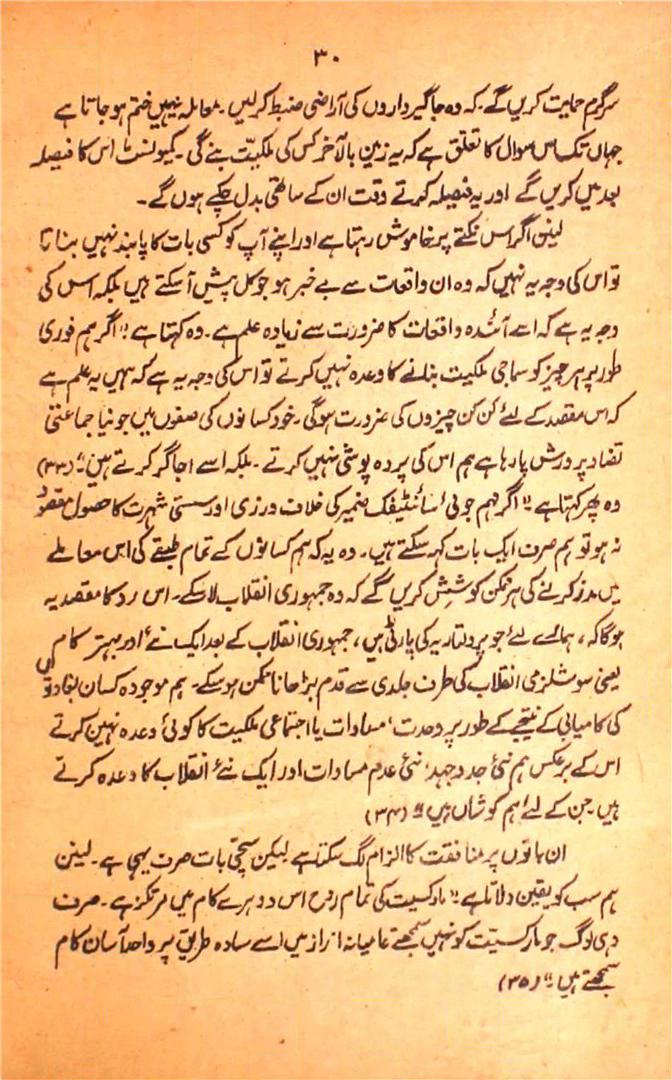 ۳۰
سرگرم حمایت کریں گے۔ کہ وہ جاگیرداروں کی آراضی ضبط کرلیں۔ معاملہ یہیں ختم ہو جاتا ہے
جہاں تک اس سوال کا تعلق ہے کہ یہ زمین بالآخر کس کی ملکیت بنے گی۔ کمیونسٹ اس کا فیصلہ
بعد میں کریں گے اور یہ فیصلہ کرتے وقت ان کے ساتھی بدل چکے ہوں گے۔
لینن اگر اس نکتے پر خاموش رہتا ہے اور اپنے آپ کو کسی بات کا پابند نہیں بناتا
تو اس کی وجہ یہ نہیں کہ وہ ان واقعات سے بے خبر ہو جو کل پیش آسکتے ہیں بلکہ اس کی
وجہ یہ ہے کہ اسے آئندہ واقعات کا ضرورت سے زیادہ علم ہے۔ وہ کہتا ہے "اگر ہم فوری
طور پر ہر چیز کو سماجی ملکیت بنانے کا وعدہ نہیں کرتے تو اس کی وجہ یہ ہے کہ ہمیں یہ علم ہے
کہ اس مقصد کے لئے کن کن چیزوں کی ضرورت ہوگی۔ خود کسانوں کی صفوں میں جو نیا جماعتی
تضاد پرورش پا رہا ہے ہم اس کی پردہ پوشی نہیں کرتے۔ بلکہ اسے اجاگر کرتے ہیں۔" (۳۳)
وہ پھر کہتا ہے "اگر مہم جوئی، سائنٹیفک ضمیر کی خلاف ورزی اور سستی شہرت کا حصول مقصود
نہ ہو تو ہم صرف ایک بات کہہ سکتے ہیں۔ وہ یہ کہ ہم کسانوں کے تمام طبقے کی اس معاملے
میں مدد کرنے کی ہر ممکن کوشش کریں گے کہ وہ جمہوری انقلاب لا سکے۔ اس رد کا مقصد یہ
ہوگا کہ، ہمارے لئے جو پرولتاریہ کی پارٹی ہیں، جمہوری انقلاب کے بعد ایک نئے اور بہتر کام
یعنی سوشلزمی انقلاب کی طرف جلدی سے قدم بڑھانا ممکن ہو سکے۔ ہم موجودہ کسان بغاوتوں
کی کامیابی کے نتیجے کے طور پر وحدت، مساوات یا اجتماعی ملکیت کا کوئی وعدہ نہیں کرتے
اس کے برعکس ہم نئی جدوجہد، نئی عدم مساوات اور ایک نئے انقلاب کا وعدہ کرتے
ہیں۔ جن کے لئے ہم کوشاں ہیں" (۳۴)
ان باتوں پر منافقت کا الزام لگ سکتا ہے لیکن سچی بات صرف یہی ہے۔ لینن
ہم سب کو یقین دلاتا ہے "مارکسیت کی تمام روح اس دوہرے کام میں مرتکز ہے۔ صرف
وہی لوگ جو مارکسیت کو نہیں سمجھتے عامیانہ انداز میں اسے سادہ طریق پر واحد آسان کام
سمجھتے ہیں۔" (۳۵)